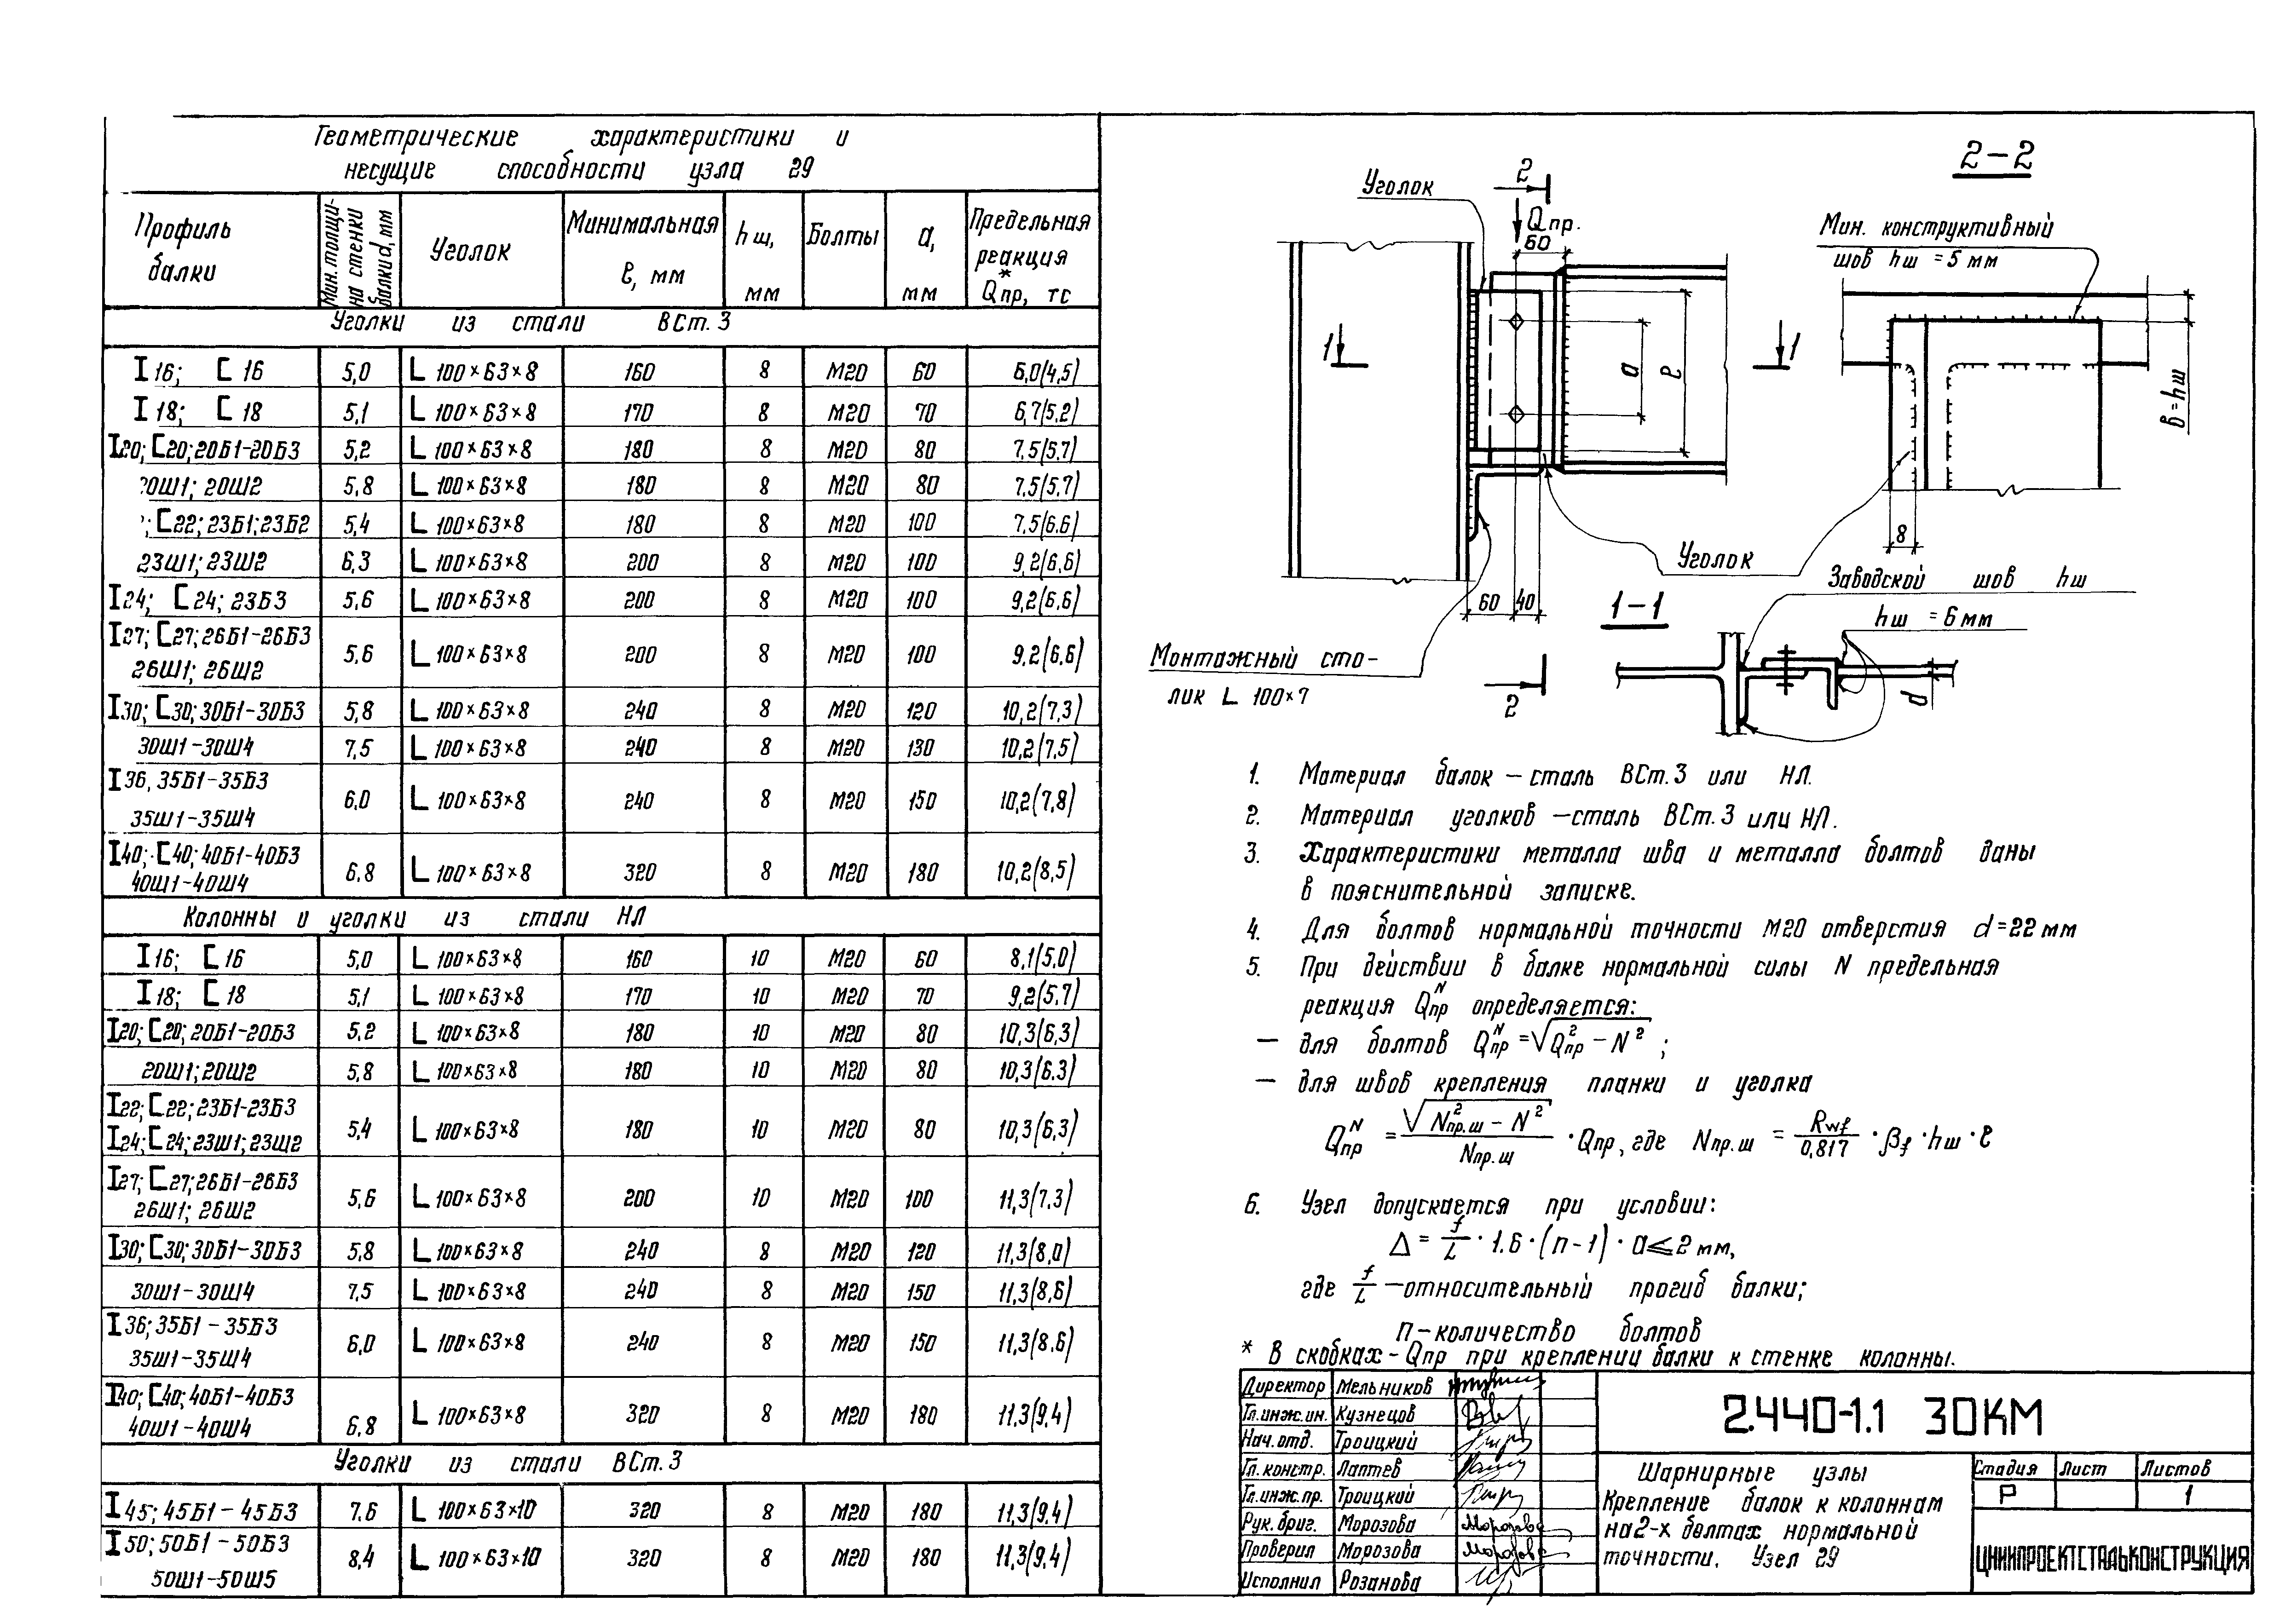 Геометрические характеристики и
несущие способности узла 29
Профиль балки | Мин. толщина стенки балки d, мм | Уголок | Минимальная ℓ, мм | hш, мм | Болты | а, мм | Предельная реакция Qпр*, тс
Уголки из стали ВСт.3
I 16; [ 16 | 5,0 | L 100×63×8 | 160 | 8 | М20 | 60 | 6,0(4,5)
I 18; [ 18 | 5,1 | L 100×63×8 | 170 | 8 | М20 | 70 | 6,7(5,2)
I20; [20; 20Б1-20Б3 | 5,2 | L 100×63×8 | 180 | 8 | М20 | 80 | 7,5(5,7)
20Ш1; 20Ш2 | 5,8 | L 100×63×8 | 180 | 8 | М20 | 80 | 7,5(5,7)
; [22; 23Б1; 23Б2 | 5,4 | L 100×63×8 | 180 | 8 | М20 | 100 | 7,5(6,6)
23Ш1; 23Ш2 | 6,3 | L 100×63×8 | 200 | 8 | М20 | 100 | 9,2(6,6)
I24; [24; 23Б3 | 5,6 | L 100×63×8 | 200 | 8 | М20 | 100 | 9,2(6,6)
I27; [27; 26Б1-26Б3
26Ш1; 26Ш2 | 5,6 | L 100×63×8 | 200 | 8 | М20 | 100 | 9,2(6,6)
I30; [30; 30Б1-30Б3 | 5,8 | L 100×63×8 | 240 | 8 | М20 | 120 | 10,2(7,3)
30Ш1-30Ш4 | 7,5 | L 100×63×8 | 240 | 8 | М20 | 130 | 10,2(7,5)
I36, 35Б1-35Б3
35Ш1-35Ш4 | 6,0 | L 100×63×8 | 240 | 8 | М20 | 150 | 10,2(7,8)
I40; [40; 40Б1-40Б3
40Ш1-40Ш4 | 6,8 | L 100×63×8 | 320 | 8 | М20 | 180 | 10,2(8,5)
Колонны и уголки из стали НЛ
I16; [ 16 | 5,0 | L 100×63×8 | 160 | 10 | М20 | 60 | 8,1(5,0)
I18; [ 18 | 5,1 | L 100×63×8 | 170 | 10 | М20 | 70 | 9,2(5,7)
I20; [20; 20Б1-20Б3 | 5,2 | L 100×63×8 | 180 | 10 | М20 | 80 | 10,3(6,3)
20Ш1; 20Ш2 | 5,8 | L 100×63×8 | 180 | 10 | М20 | 80 | 10,3(6,3)
I22; [22; 23Б1-23Б3
I24; [24; 23Ш1; 23Ш2 | 5,4 | L 100×63×8 | 180 | 10 | М20 | 80 | 10,3(6,3)
I27; [27; 26Б1-26Б3
26Ш1; 26Ш2 | 5,6 | L 100×63×8 | 200 | 10 | М20 | 100 | 11,3(7,3)
I30; [30; 30Б1-30Б3 | 5,8 | L 100×63×8 | 240 | 8 | М20 | 120 | 11,3(8,0)
30Ш1-30Ш4 | 7,5 | L 100×63×8 | 240 | 8 | М20 | 150 | 11,3(8,6)
I36; 35Б1-35Б3
35Ш1-35Ш4 | 6,0 | L 100×63×8 | 240 | 8 | М20 | 150 | 11,3(8,6)
I40; [40; 40Б1-40Б3
40Ш1-40Ш4 | 6,8 | L 100×63×8 | 320 | 8 | М20 | 180 | 11,3(9,4)
Уголки из стали ВСт.3
I45; 45Б1-45Б3 | 7,6 | L 100×63×10 | 320 | 8 | М20 | 180 | 11,3(9,4)
I50; 50Б1-50Б3
50Ш1-50Ш5 | 8,4 | L 100×63×10 | 320 | 8 | М20 | 180 | 11,3(9,4)
Уголок
2
Qпр.
60
1
а
ℓ
1
60 40
Уголок
Монтажный сто-
лик L 100×7
2
2-2
Мин. конструктивный
шов hш = 5 мм
в = hш
8
1-1
Заводской шов hш
hш = 6 мм
d
1. Материал балок – сталь ВСт.3 или НЛ.
2. Материал уголков – сталь ВСт.3 или НЛ.
3. Характеристики металла шва и металла болтов даны
в пояснительной записке.
4. Для болтов нормальной точности М20 отверстия d=22 мм
5. При действии в балке нормальной силы N предельная
реакция Qпр^N определяется:
– для болтов Qпр^N = √(Qпр² – N²) ;
– для швов крепления планки и уголка
Qпр^N = √(Nпр.ш² – N²) / Nпр.ш · Qпр, где Nпр.ш = Rwf/0,817 · βf · hш · ℓ
6. Узел допускается при условии:
Δ = f/L · 1.6 · (n-1) · а ⩽ 2 мм,
где f/L – относительный прогиб балки;
п – количество болтов
* В скобках – Qпр при креплении балки к стенке колонны.
Директор Мельников
Гл.инж.ин. Кузнецов
Нач.отд. Троицкий
Гл.констр. Лаптев
Гл.инж.пр. Троицкий
Рук.бриг. Морозова
Проверил Морозова
Исполнил Розанова
2.440-1.1 30КМ
Шарнирные узлы
Крепление балок к колоннам
на 2-х болтах нормальной
точности. Узел 29
Стадия Лист Листов
Р 1
ЦНИИПРОЕКТСТАЛЬКОНСТРУКЦИЯ